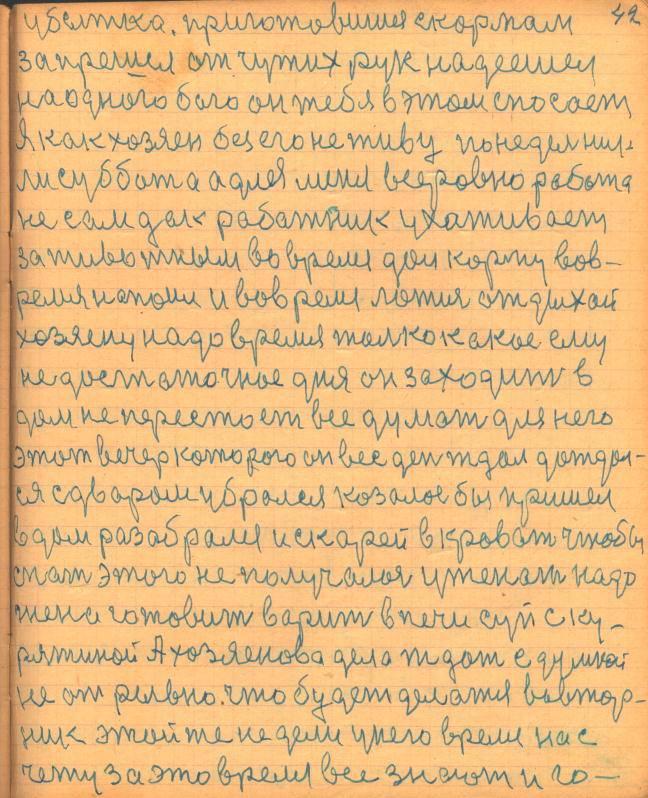 42
убытка. приготовишся скормам
запрешся от чужих рук надеешся
наодного бога он тебя вэтом спосает
Я как хозяен без его не живу понеделник
ли суббота адля меня всеровно работа
не сам дак работник ухаживает
заживотным во время дои корму вов-
ремя напои и вовремя ложися отдыхай
хозяену надо время толко какое ему
не достаточное дня он заходит в
дом не перестоет все думат для него
этот вечер которого он весь ден ждал дождал-
ся сдваром убрался козалос бы пришел
вдом разобрался искарей вкроват чтобы
спат этого не получался уженат надо
жена готовит варит впечи суп с ку-
рятиной А хозяенова дела ждат сдумкой
не от рывно. что будет делатя вовтор-
ник этой же недели унего время нас
чету за это время все знают и го-